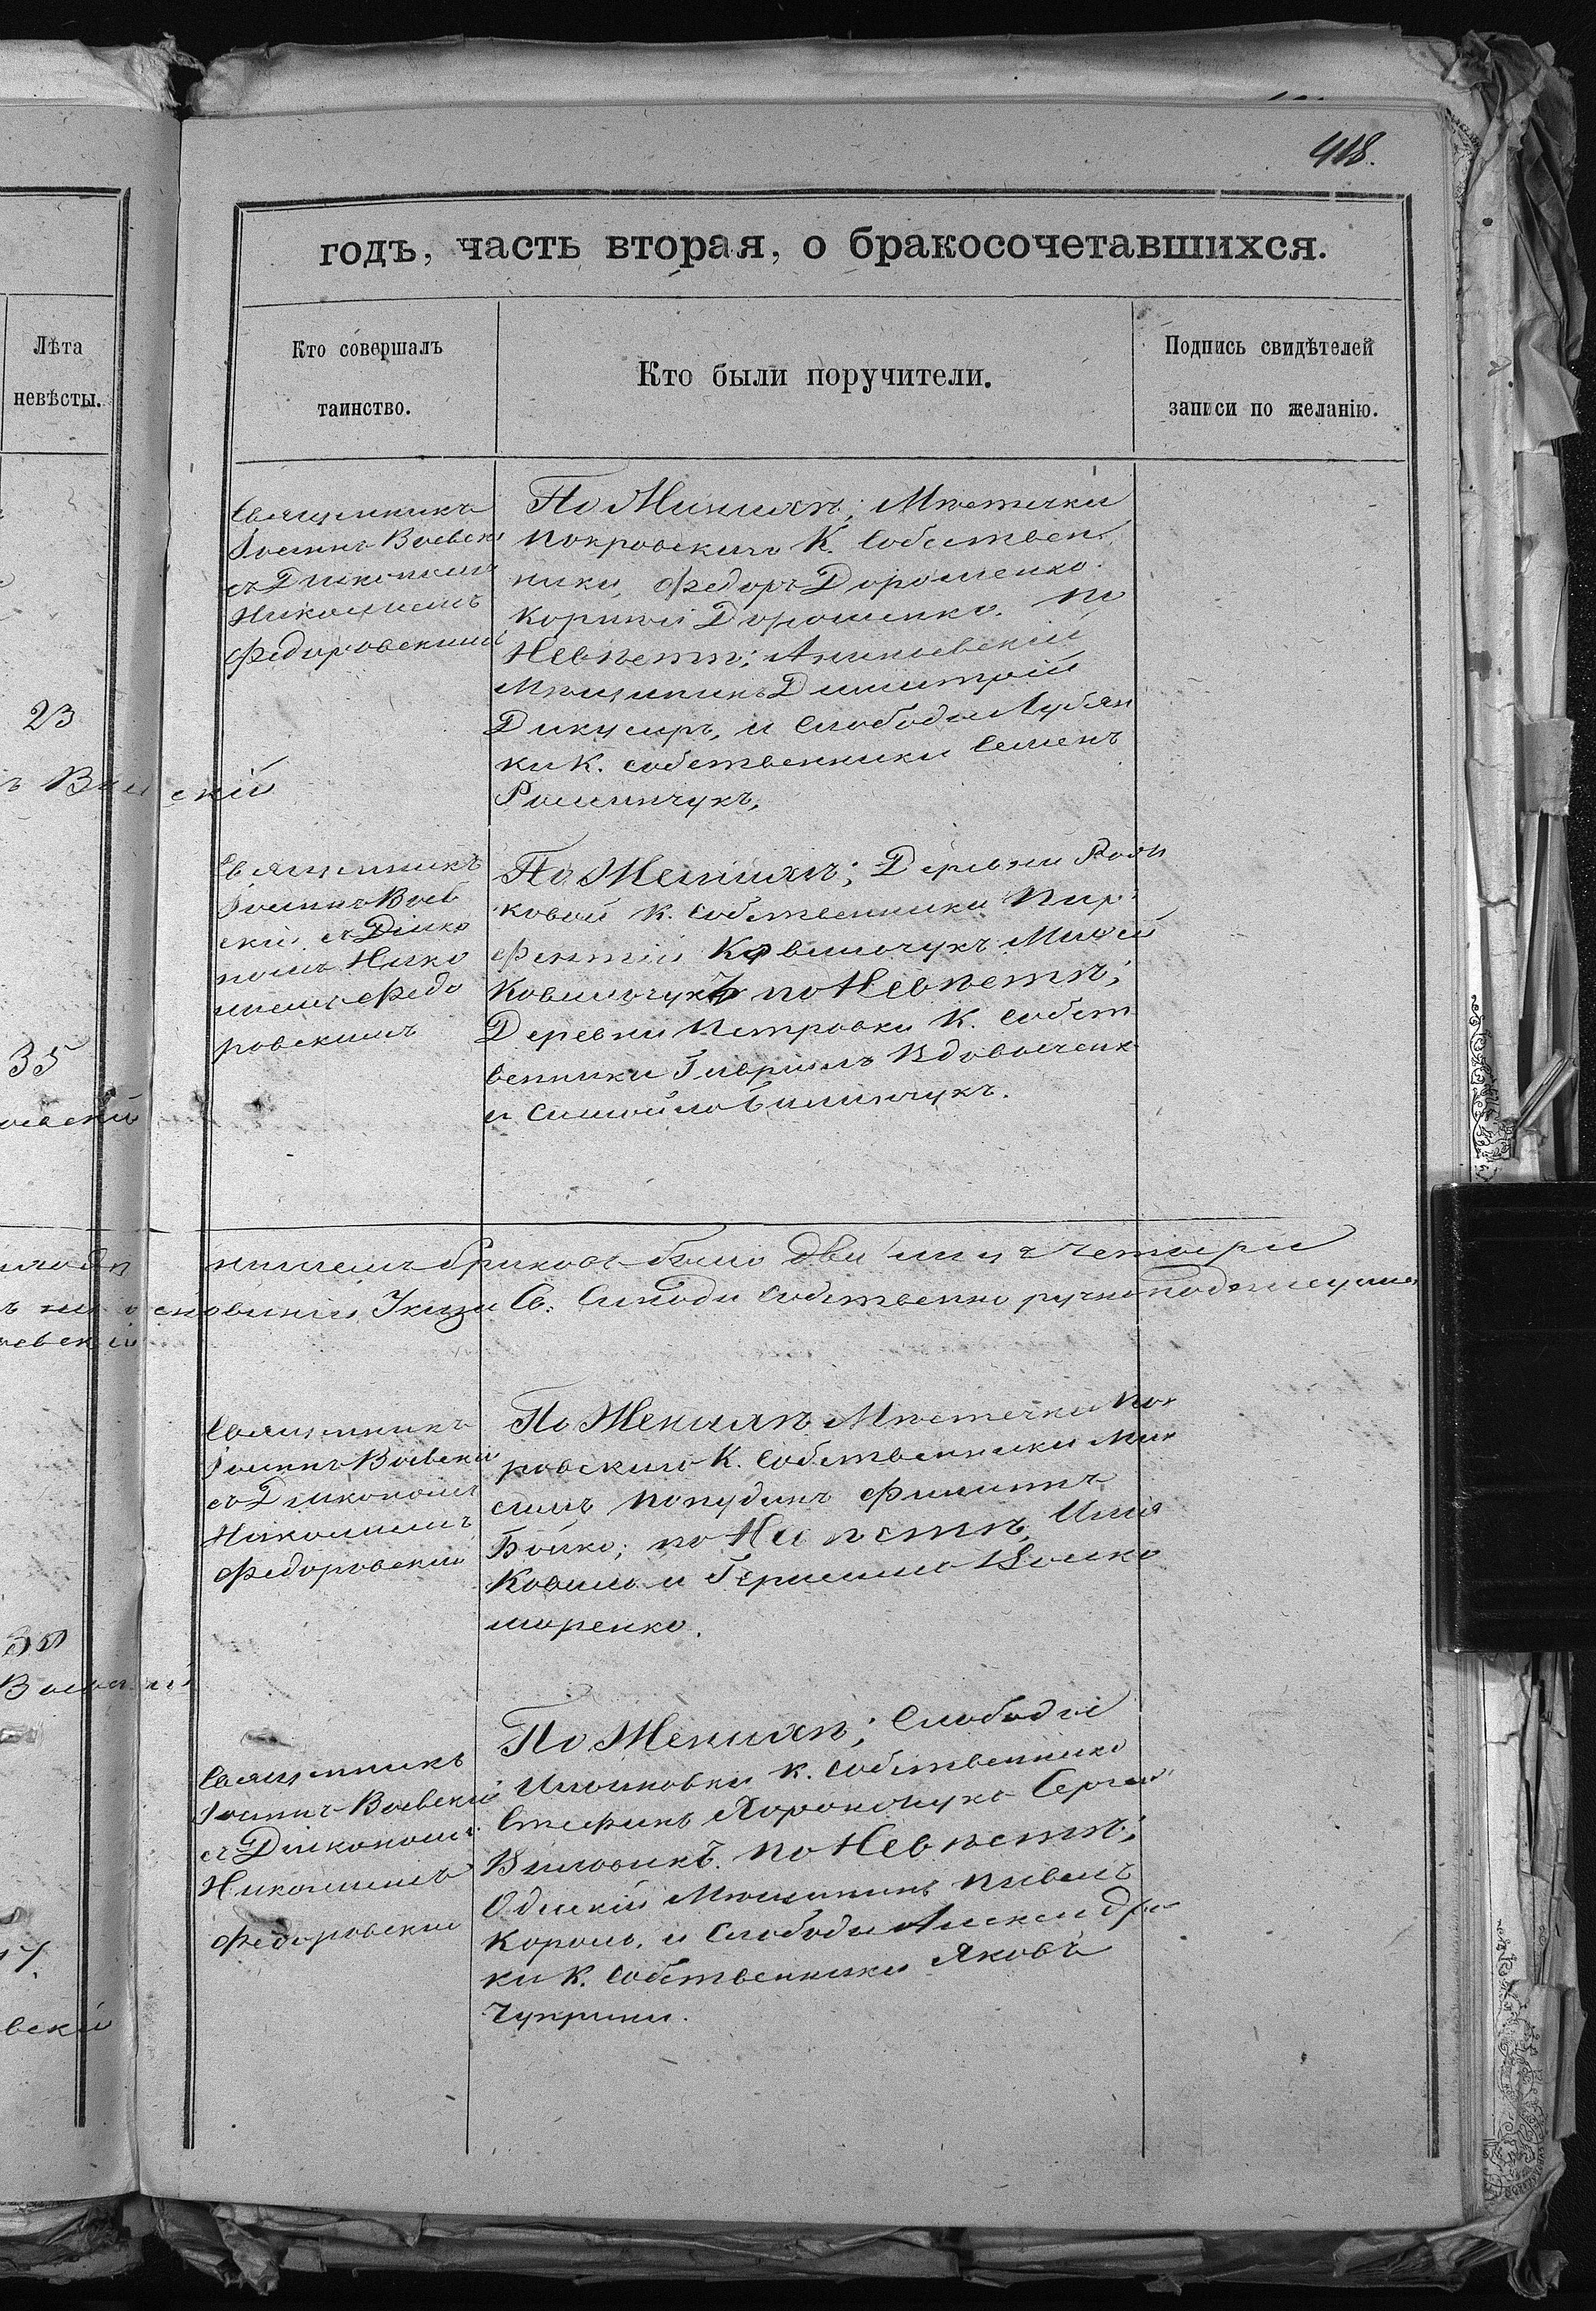 418.
годъ, часть вторая, о бракосочетавшихся.
Лѣта
невѣсты.
Кто совершалъ
таинство.
Кто были поручители.
Подпись свидѣтелей
записи по желанію.
23
35
30
17.
вскій
Священникъ
Іоаннъ Воевскі
съ Діакономъ
Николаемъ
Федоровскимъ
По Женихѣ; Мѣстечка
Покровскаго К. Собствен
ники, Федоръ Дорошенко.
Корнѣй Дорошенко. по
Невѣстѣ; Ананьевскій
Мѣщанинъ Димитрій
и Слободы Лубян
ки К. собственники Семенъ
Романчукъ,
Священникъ
Іоаннъ Воев
скій съ Діако
номъ Нико
лаемъ Федо
ровскимъ
По Женихѣ; Деревни
ковой К. Собственники Пар
фентій Ковальчукъ
Ковальчукъ по Невѣстѣ;
Деревни Петровки К. собст
венники Гавріилъ Вдовиченк
и Самойло
браковъ было два лицъ четыри
Указа Св. Синода Собственно ручно подписуемся
Священникъ
Іоаннъ Воевскій
съ Діакономъ
Николаемъ
Федоровским
По Женихѣ Мѣстечка Пок
ровскаго К. Собственники Мак
симъ Филиппъ
Бойко; по Невѣстѣ, Илія
Коваль и Герасимъ
маренко.
Священникъ
Іоаннъ Воевскій
съ Діакономъ
Николаемъ
Федоровским
По Женихѣ; Слободы
К. Собственники
Стефанъ Сергей
по Невѣстѣ;
Одескій Мѣщанинъ Павелъ
Король, и Слободы Александро
ки К. Собственники Яковъ
Чуприна.